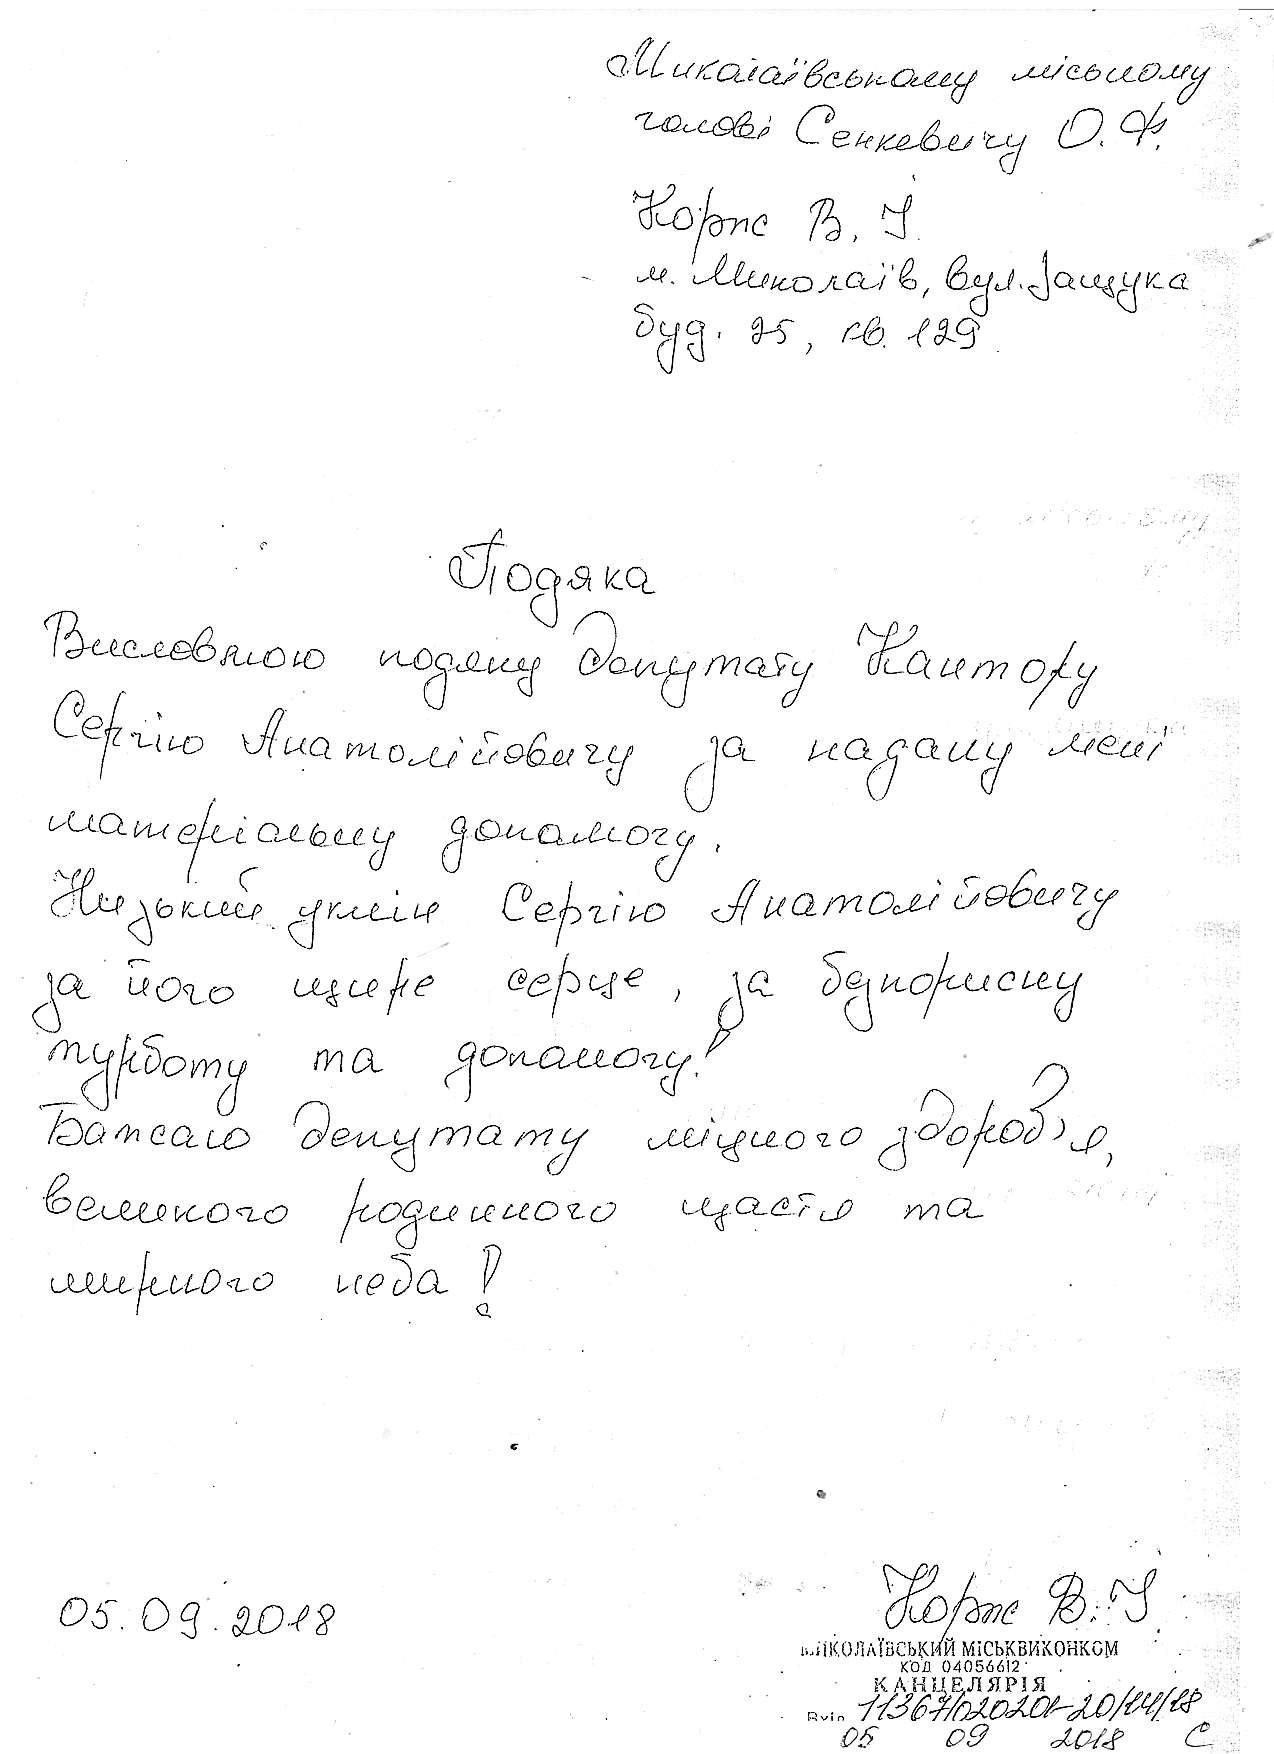 Миколаївському міському
голові Сенкевичу О. Ф.
Корпс В. І.
м. Миколаїв, вул. Защука
буд. 25, кв. 129
Подяка
Висловлюю подяку депутату Кантору
Сергію Анатолійовичу за надану мені
матеріальну допомогу.
Низький уклін Сергію Анатолійовичу
за його щире серце, за безкорисну
турботу та допомогу!
Бажаю депутату міцного здоров'я,
великого родинного щастя та
мирного неба!
Корпс В. І.
05.09.2018
МИКОЛАЇВСЬКИЙ МІСЬКВИКОНКОМ
КОД 04056612
КАНЦЕЛЯРІЯ
Вхід. 11367/020201-20/14/18
05 09 2018